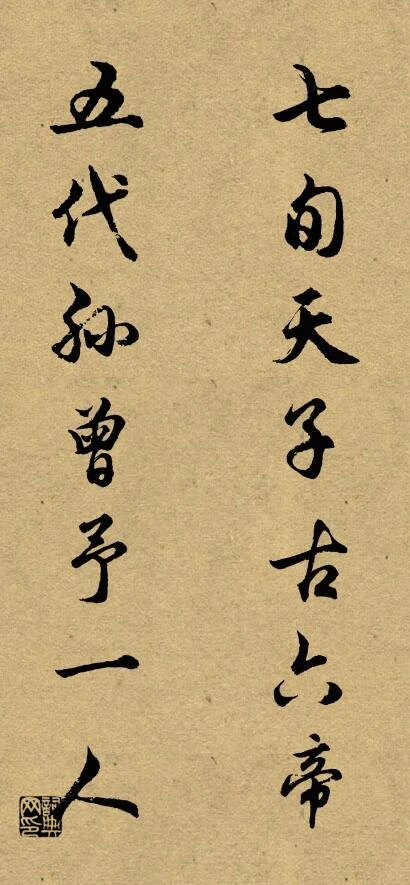 七旬天子古六帝
五代孙曾予一人